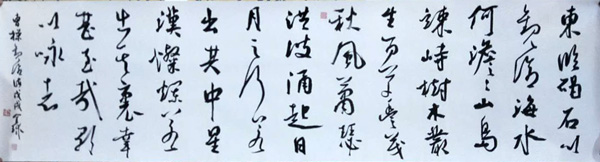 東臨碣石以
觀滄海水
何澹々山島
竦峙樹木叢
生百草豐茂
秋風蕭瑟
洪波涌起日
月之行若
出其中星
漢燦爛若
出其裏幸
甚至哉歌
以詠志
曹操觀滄海戊戌